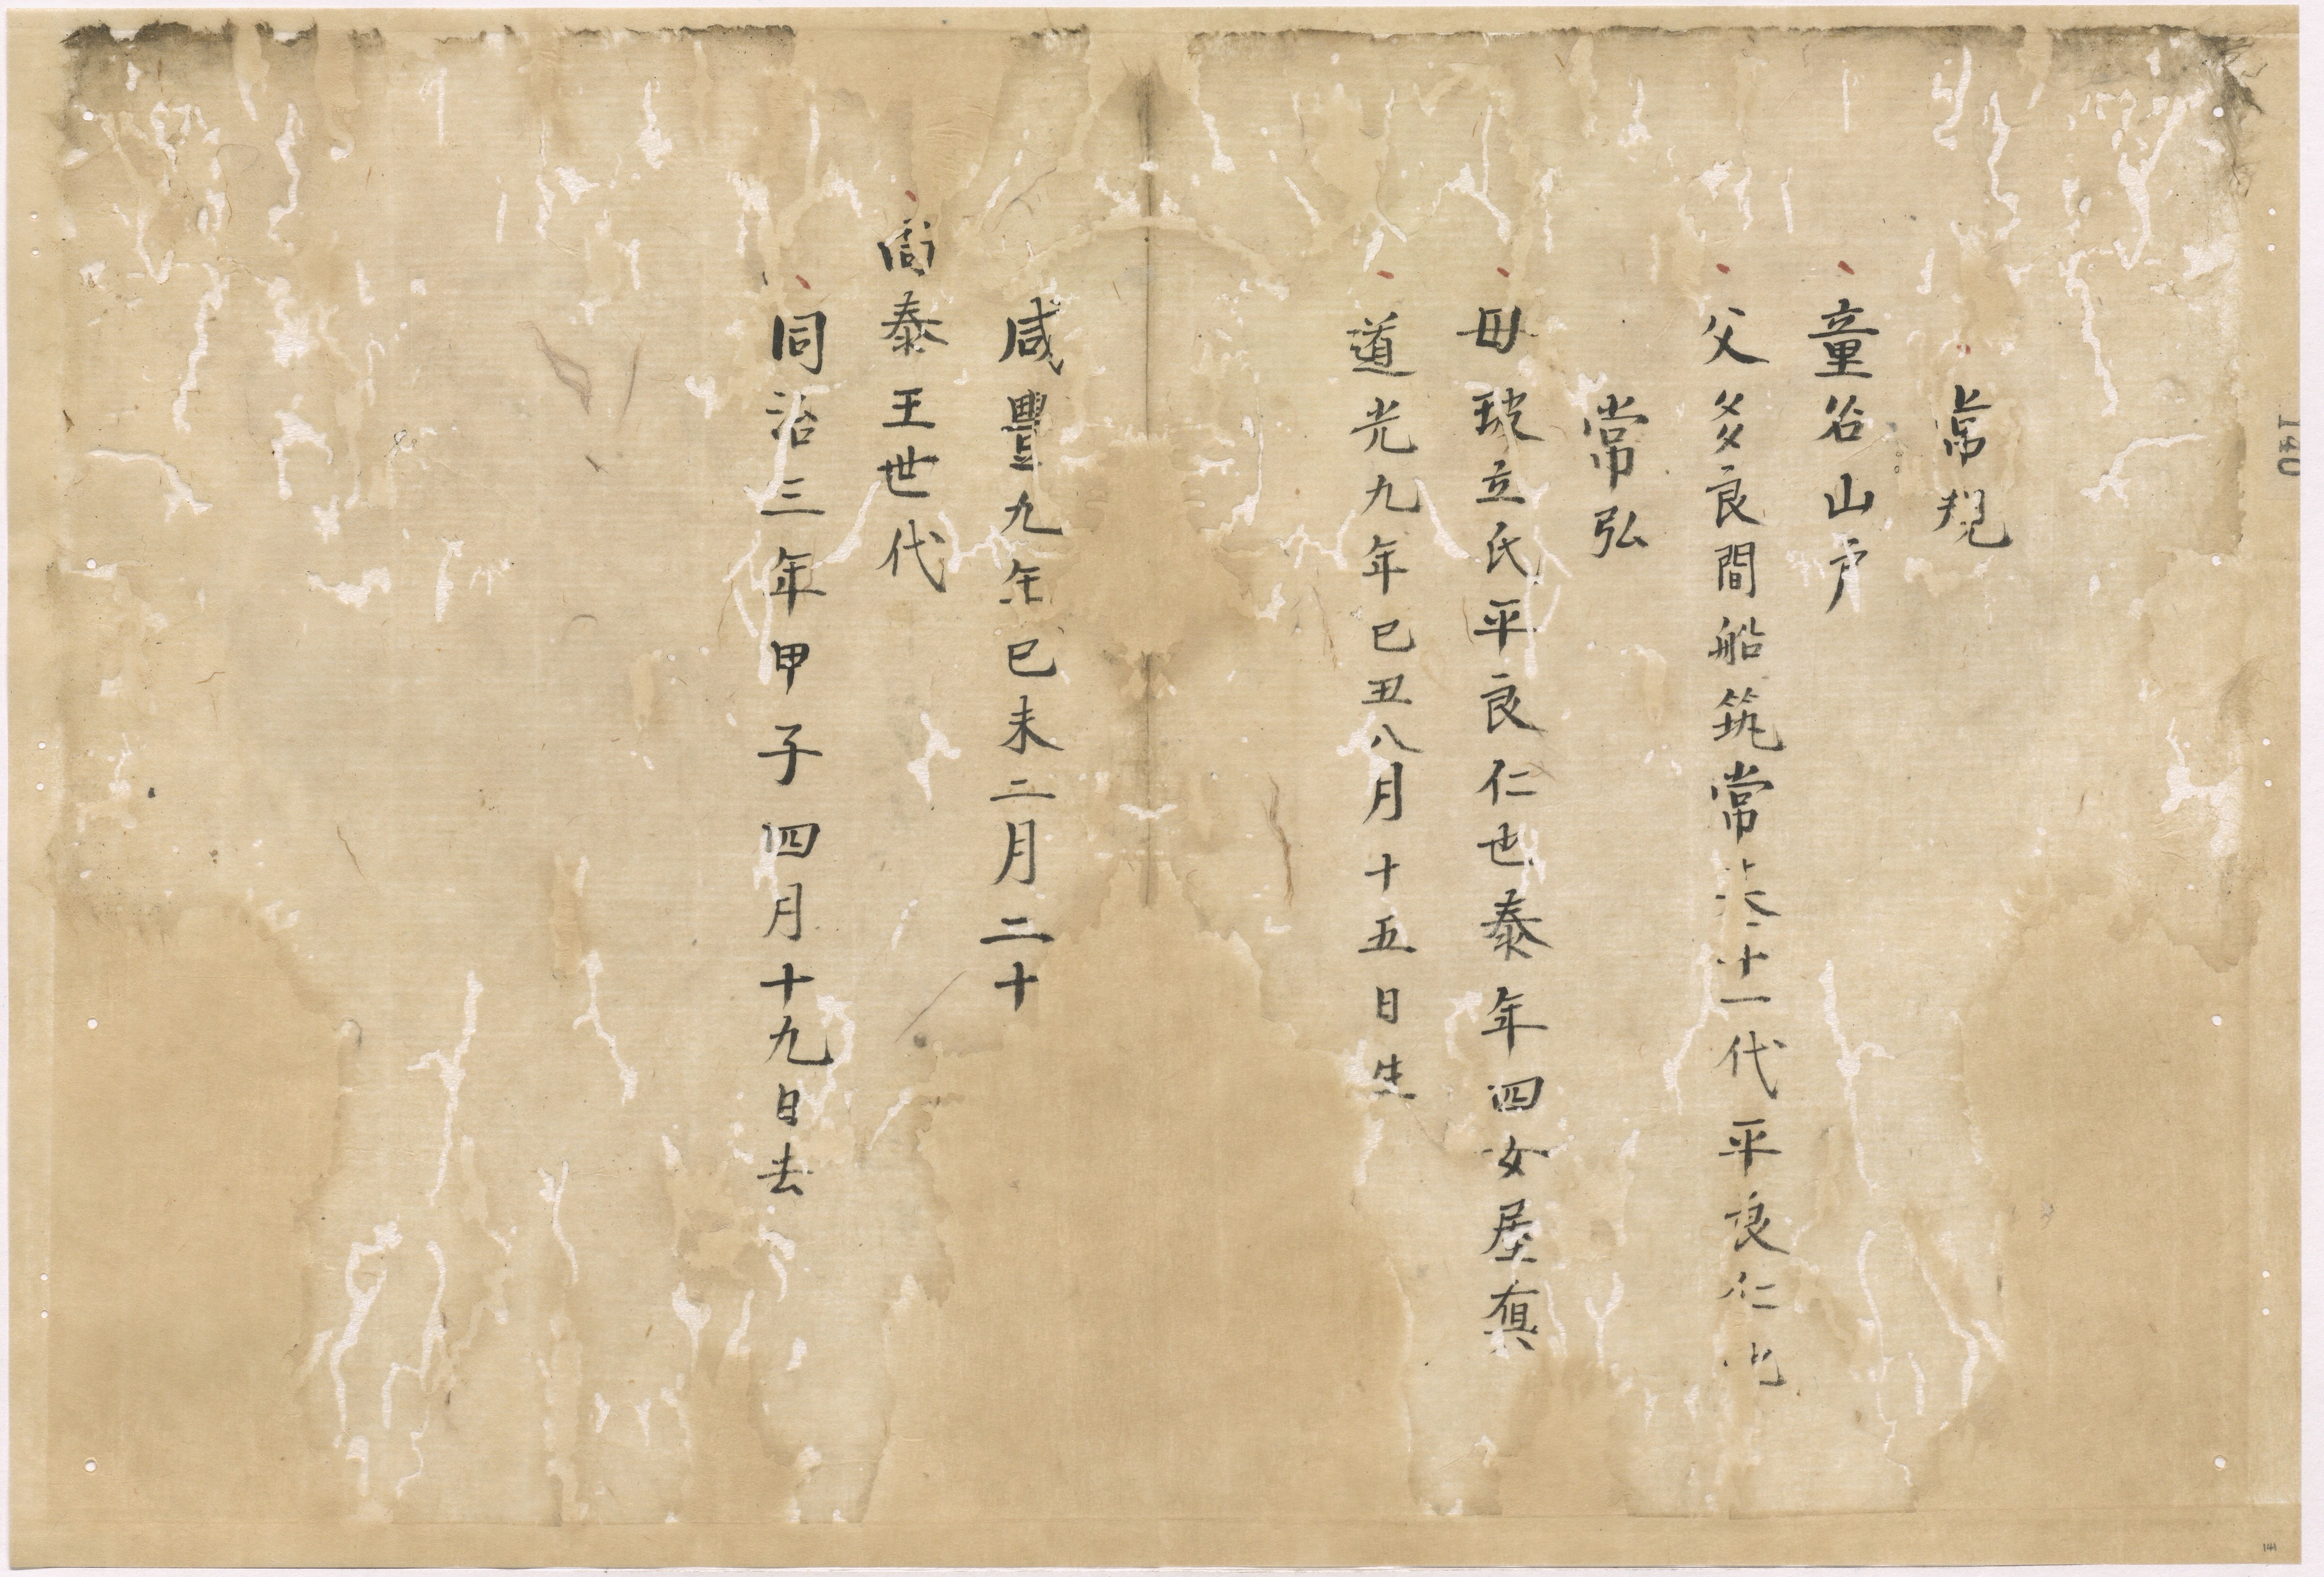 常規
童名山戸
父多良間船筑常 十一代平良仁也
常弘
母玻立氏平良仁也泰年四女屋真
道光九年己丑八月十五日生
咸豐九年己未二月二十
尚泰王世代
同治三年甲子四月十九日去
140
141